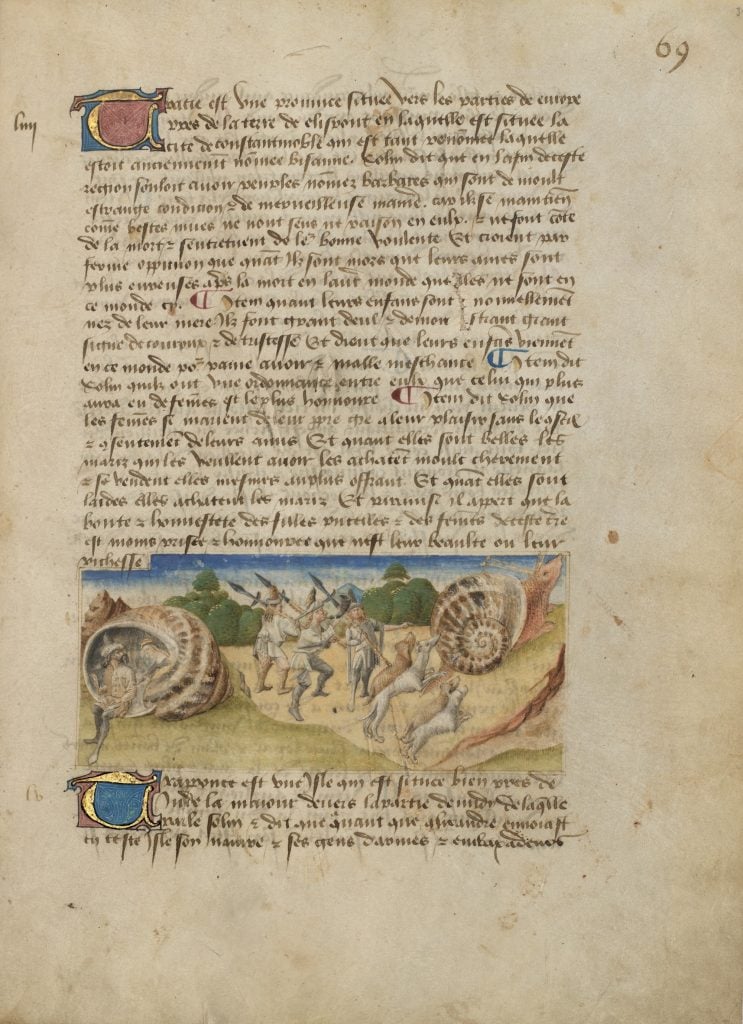 69
liiii
Tracie est vne prouince situee vers les parties de europe
pres de la terre de elispont en laquelle est situee la
cite de constantinoble qui est tant renōmee laquelle
estoit anciennemt nōmee bisanne. Solin dit que en la fin de ceste
region souloit auoir peuples nōmez barbares qui sont de moult
estrange condicion ⁊ de merueilleuse maniē. car ilz se maintiēn
cōme bestes mues ne nont sens ne raison en eulx. ⁊ ne font cōte
de la mort ⁊ sentretuent de le bonne voulente Et croient par
ferme oppinion que quāt ilz sont mors que leurs ames sont
plus eureuses apŝ la mort en laut monde que elles ne sont en
ce monde cy. ¶ Item quant leurs enfans sont nouuellemēt
nez de leur mere ilz font grant deul ⁊ demonstrant grant
signe de couroux ⁊ de tristesse Et dient que leurs enfās viennēt
en ce monde po paine auoir ⁊ malle meschance ¶ Item dit
Solin quilz ont vne ordonnance entre eulx que celui qui plus
aura eu de femēs est le plus honnoure ¶ Item dit Solin que
les femēs se marient a leur plaisir sans le oseil
⁊ ꝯsentement de leurs amis Et quant elles sont belles les
mariz qui les veullent auoir les achatēt moult chierement
⁊ se vendent elles mesmes au plus offrant Et quāt elles sont
laides elles achatent les mariz Et par ainsi il appert que la
bonte ⁊ honnestete des filles pucelles ⁊ des femēs de ceste tr̄e
est moins prisee ⁊ honnouree que nest leur beaulte ou leur
richesse
Traponce est vne isle qui est situee bien pres de
Inde la maiour deuers la partie de midy de laqlle
parle solin ⁊ dit que quant que alixandre enuoiast
en ceste isle son nauire ⁊ ses gens darmes ⁊ embaxadeurs